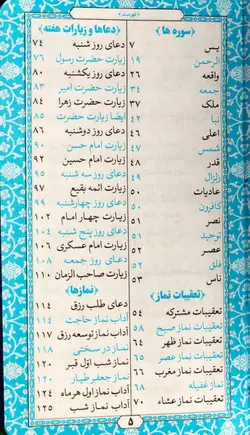 فهرست
﴿سوره ها﴾
یس ۷
الرحمن ۱۹
واقعه ۲۶
جمعه ۳۴
ملک ۳۷
نبا ۴۲
اعلی ۴۶
شمس ۴۷
قدر ۴۸
زلزال ۴۹
عادیات ۵۰
کافرون ۵۰
نصر ۵۱
توحید ۵۱
عصر ۵۲
فلق ۵۲
ناس ۵۳
﴿تعقیبات نماز﴾
تعقیبات مشترکه ۵۴
تعقیبات نماز صبح ۵۸
تعقیبات نماز ظهر ۶۴
تعقیبات نماز عصر ۶۵
تعقیبات نماز مغرب ۶۶
نماز غفیله ۶۸
تعقیبات نماز عشاء ۷۰
﴿دعاها و زیارات هفته﴾
دعای روز شنبه ۷۴
زیارت حضرت رسول ۷۶
دعای روز یکشنبه ۸۰
زیارت حضرت امیر ۸۳
زیارت حضرت زهرا ۸۴
ایضا زیارت حضرت ۸۵
دعای روز دوشنبه ۸۶
زیارت امام حسن ۹۰
زیارت امام حسین ۹۲
دعای روز سه شنبه ۹۵
زیارت ائمه بقیع ۹۷
دعای روز چهارشنبه ۹۹
زیارت چهار امام ۱۰۲
دعای روز پنج شنبه ۱۰۴
زیارت امام عسکری ۱۰۶
دعای روز جمعه ۱۰۸
زیارت صاحب الزمان ۱۱۰
﴿نمازها﴾
دعای طلب رزق ۱۱۴
آداب نماز حاجت ۱۱۴
آداب نماز توسعه رزق ۱۱۷
نماز در سختی ۱۱۸
نماز شب اوّل قبر ۱۲۰
نماز جعفر طیار ۱۲۰
آداب نماز اول هر ماه ۱۲۴
آداب نماز شب ۱۲۵
۵